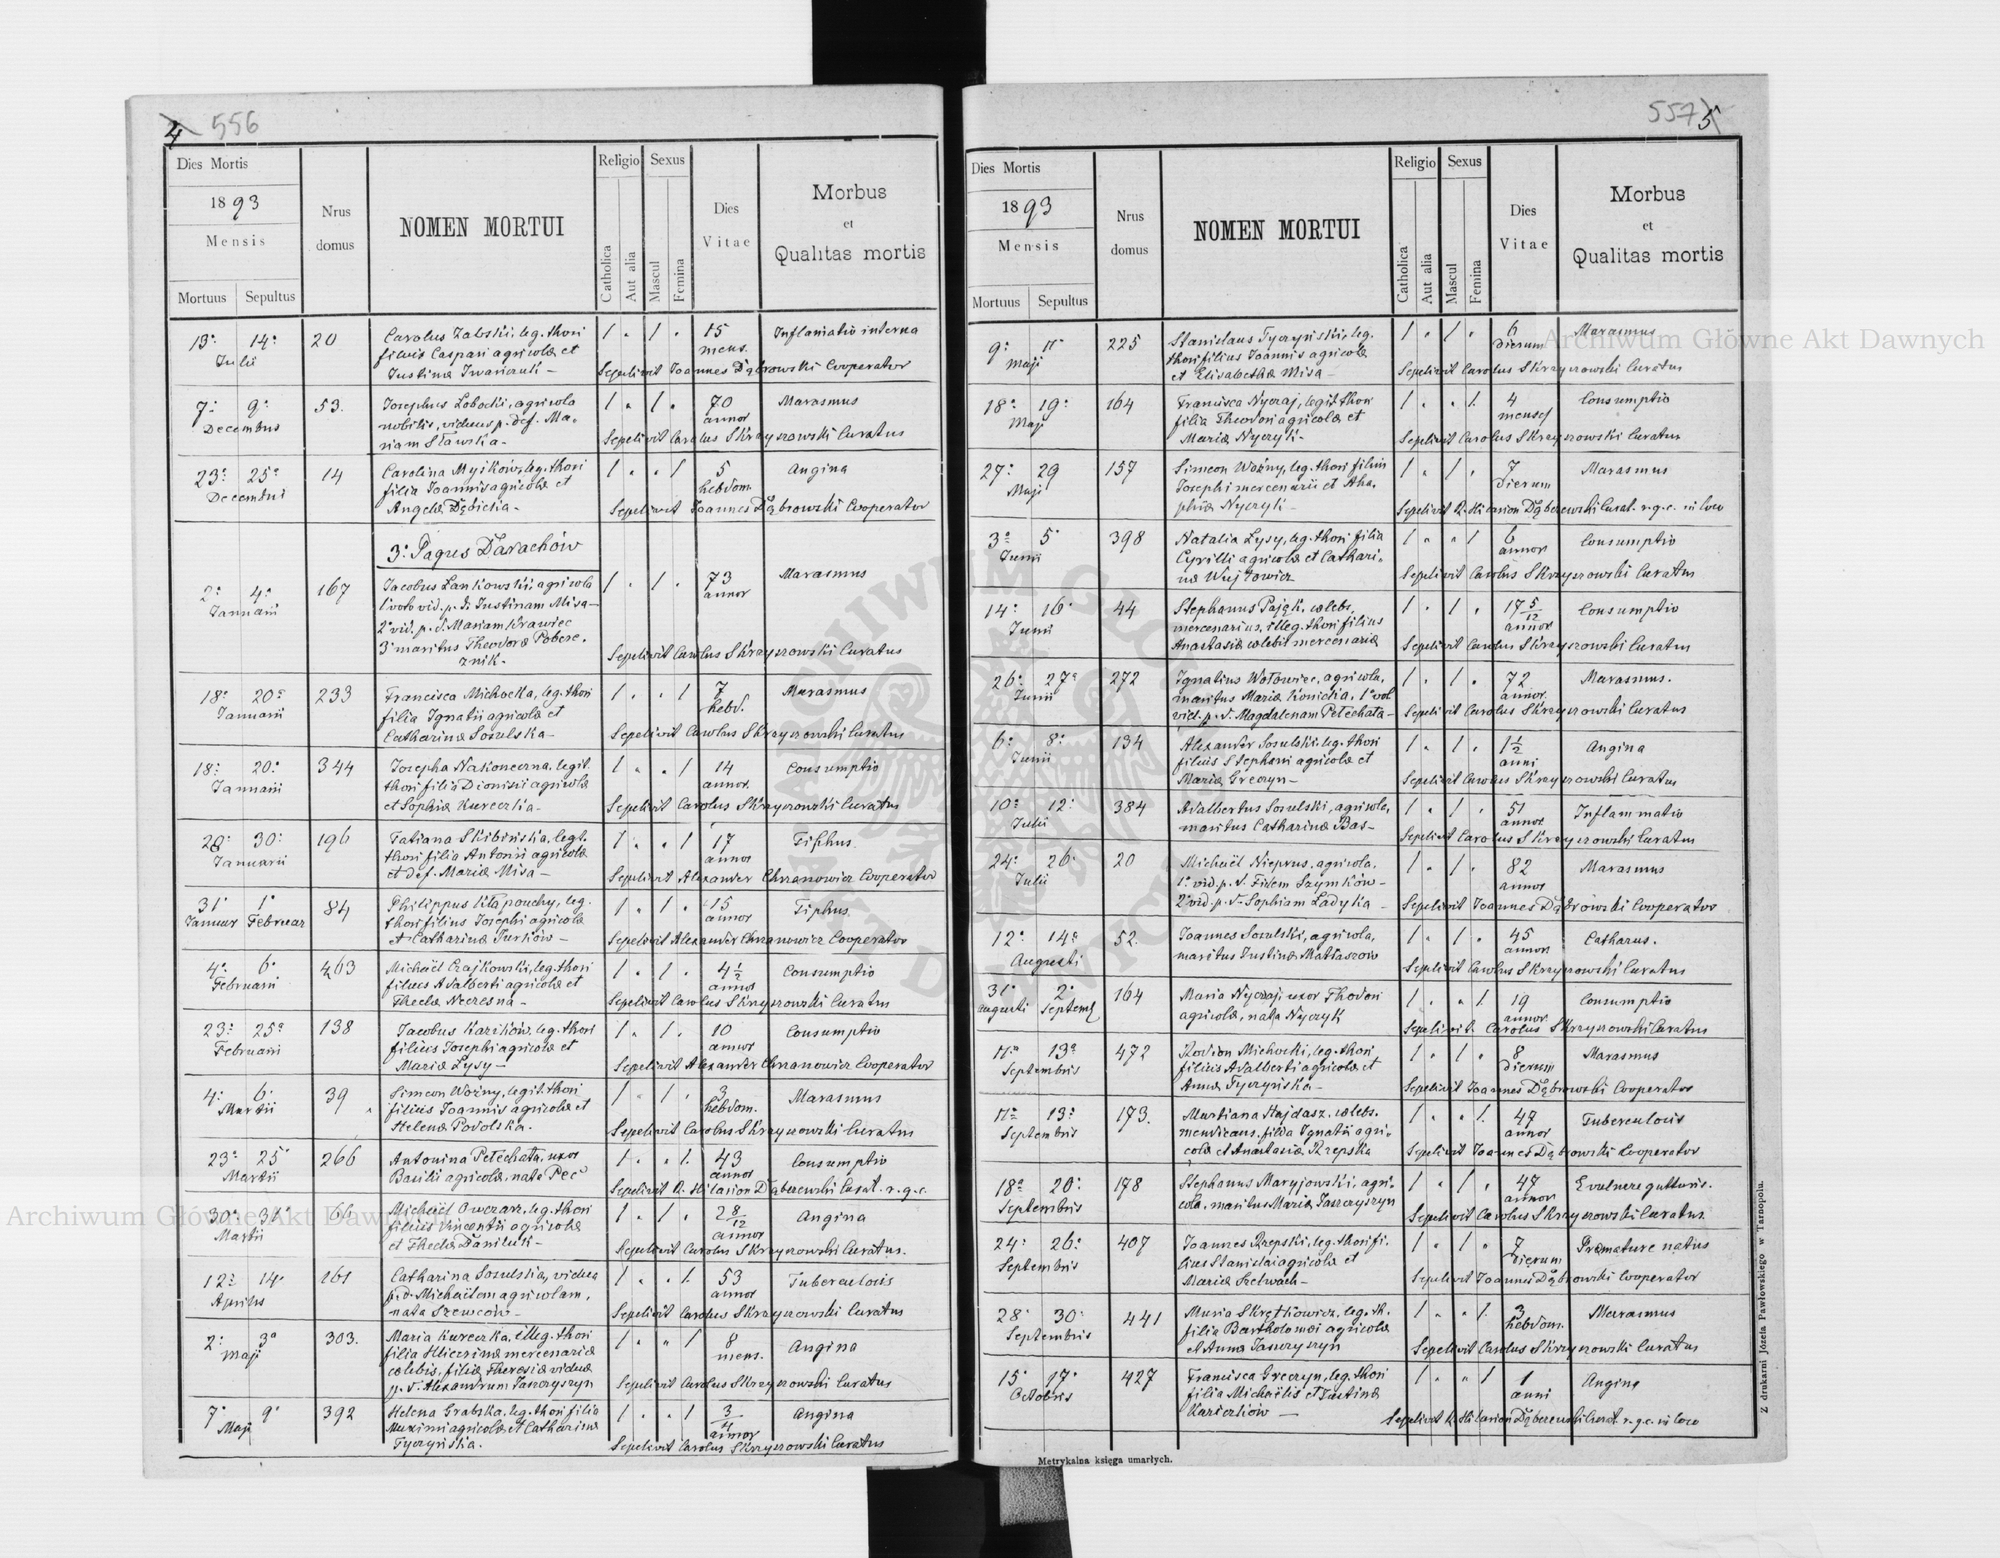 4 556
Dies Mortis
1893
Mensis
Mortuus Sepultus
Nrus domus
NOMEN MORTUI
Religio
Catholica
Aut alia
Sexus
Mascul
Femina
Dies Vitae
Morbus
et
Qualitas mortis
13. 14. Julii 20 Carolus Zaboski, leg. thori 1 " 1 " 15 mens. Inflamatio interna
filius Caspari agricolæ et
Justinæ Iwańczuk - Sepelivit Joannes Dąbrowski Cooperator
7. 9. Decembris 53. Josephus Łobocki, agricola 1 " 1 " 70 annor Marasmus
nobilis, viduus p. def. Ma-
riam Sławska - Sepelivit Carolus Skrzyszowski Curatus
23. 25. Decembris 14 Carolina Myików, leg. thori 1 " " 1 5 hebdom. Angina
filia Joannis agricolæ et
Angelæ Dąbicka - Sepelivit Joannes Dąbrowski Cooperator
3. Pagus Darachów
2. 4. Januarii 167 Jacobus Lankowski, agricola 1 " 1 " 73 annor Marasmus
1° voto vid. p. d. Justinam Misa -
2° vid. p. d. Mariam Krawiec
3° maritus Theodoræ Pobere-
znik. Sepelivit Carolus Skrzyszowski Curatus
18. 20. Januarii 233 Francisca Michocka, leg. thori 1 " " 1 7 hebd. Marasmus
filia Ignatii agricolæ et
Catharinæ Sosulska - Sepelivit Carolus Skrzyszowski Curatus
18. 20. Januarii 344 Josepha Nakoneczna, legit. 1 " " 1 14 annor. Consumptio
thori filia Dionisii agricolæ
et Sophiæ Kureczka - Sepelivit Carolus Skrzyszowski Curatus
28. 30. Januarii 196 Tatiana Skibińska, legt. 1 " " 1 17 annor Tiphus.
thori filia Antonii agricolæ
et def. Mariæ Misa - Sepelivit Alexander Chrzanowicz Cooperator
31. 1. Januar Februar 84 Philippus Kłapouchy, leg. 1 " 1 " 15 annor Tiphus.
thori filius Josephi agricolæ
et Catharinæ Turków - Sepelivit Alexander Chrzanowicz Cooperator
4. 6. Februarii 463 Michaël Czajkowski, leg. thori 1 " 1 " 4 1/2 annor Consumptio
filius Adalberti agricolæ et
Theclæ Neczesna - Sepelivit Carolus Skrzyszowski Curatus
23. 25. Februarii 138 Jacobus Kazików, leg. thori 1 " 1 " 10 annor Consumptio
filius Josephi agricolæ et
Mariæ Łysy - Sepelivit Alexander Chrzanowicz Cooperator
4. 6. Martii 39 Simeon Woźny, legit. thori 1 " 1 " 3 hebdom. Marasmus
filius Joannis agricolæ et
Helenæ Podolska. Sepelivit Carolus Skrzyszowski Curatus
23. 25. Martii 266 Antonina Petechata, uxor 1 " " 1. 43 annor Consumptio
Basilii agricolæ, nata Peć Sepelivit R. Hilarion Dąberewski Curat. r. g. c.
30. 31. Martii 66 Michaël Owczarz, leg. thori 1 " 1 " 2 8/12 annor Angina
filius Vincentii agricolæ
et Theclæ Daniluk - Sepelivit Carolus Skrzyszowski Curatus.
12. 14. Aprilis 161 Catharina Sosulska, vidua 1 " " 1. 53 annor Tuberculosis
p. d. Michaëlem agricolam,
nata Szewców - Sepelivit Carolus Skrzyszowski Curatus
2. 3. Maji 303. Maria Kureczka, illeg. thori 1 " " 1 8 mens. Angina
filia mercenariæ
cælebis, filiæ Theresiæ viduæ
p. d. Alexandrum Jaszczyszyn Sepelivit Carolus Skrzyszowski Curatus
7. 9. Maji 392 Helena Grabska, leg. thori filia 1 " " 1 3/4 annor Angina
Maximi agricolæ et Catharinæ
Tyczyńska. Sepelivit Carolus Skrzyszowski Curatus
557 5
Dies Mortis
1893
Mensis
Mortuus Sepultus
Nrus domus
NOMEN MORTUI
Religio
Catholica
Aut alia
Sexus
Mascul
Femina
Dies Vitae
Morbus
et
Qualitas mortis
9. 11. Maji 225 Stanislaus Tyczyński, leg. 1 " 1 " 6 dierum Marasmus
thori filius Joannis agricolæ
et Elisabethæ Misa - Sepelivit Carolus Skrzyszowski Curatus
18. 19. Maji 164 Francisca Nyczaj, legit. thori 1 " " 1. 4 menses Consumptio
filia Theodori agricolæ et
Mariæ Nyczyk - Sepelivit Carolus Skrzyszowski Curatus
27. 29 Maji 157 Simeon Woźny, leg. thori filius 1 " 1 " 7 dierum Marasmus
Josephi mercenarii et Aha-
phiæ Nyczyk - Sepelivit R. Hilarion Dąberewski Curat. r. g. c. in loco
3. 5. Junii 398 Natalia Łysy, leg. thori filia 1 " " 1 6 annor Consumptio
Cyrilli agricolæ et Cathari-
næ Wujtowicz Sepelivit Carolus Skrzyszowski Curatus
14. 16. Junii 44 Stephanus Pająk, cælebs, 1 " 1 " 17 5/12 annor Consumptio
mercenarius, illeg. thori filius
Anastasiæ cælebis mercenariæ Sepelivit Carolus Skrzyszowski Curatus
26. 27. Junii 272 Ignatius Wołowiec, agricola, 1 " 1 " 72 annor. Marasmus.
maritus Mariæ Konicka, 1° vol
vid. p. d. Magdalenam Petechata - Sepelivit Carolus Skrzyszowski Curatus
6. 8. Junii 134 Alexander Sosulski, leg. thori 1 " 1 " 1 1/2 anni Angina
filius Stephani agricolæ et
Mariæ Greczyn - Sepelivit Carolus Skrzyszowski Curatus
10. 12. Julii 384 Adalbertus Sosulski, agricola, 1 " 1 " 51 annor Inflammatio
maritus Catharinæ Bas - Sepelivit Carolus Skrzyszowski Curatus
24. 26. Julii 20 Michaël Nieprus, agricola, 1 " 1 " 82 annor Marasmus
1° vid. p. d. Fidem Szymków -
2° vid. p. d. Sophiam Ladyka - Sepelivit Joannes Dąbrowski Cooperator
12. 14. Augusti 52. Joannes Sosulski, agricola, 1 " 1 " 45 annor Catharus.
maritus Justinæ Matiaszow Sepelivit Carolus Skrzyszowski Curatus
31. 2. Augusti Septemb 164 Maria Nyczaj uxor Thodori 1 " " 1. 19 annor Consumptio
agricolæ, nata Nyczyk Sepelivit Carolus Skrzyszowski Curatus
11. 13. Septembris 472 Rodion Michocki, leg. thori 1 " 1 " 8 dierum Marasmus
filius Adalberti agricolæ et
Annæ Tyczyńska - Sepelivit Joannes Dąbrowski Cooperator
11. 13. Septembris 173. Martiana Hajdasz, cælebs. 1 " " 1. 47 annor Tuberculosis
mendicans, filia Ignatii agri-
colæ et Anastasiæ Rzepska Sepelivit Joannes Dąbrowski Cooperator
18. 20. Septembris 178 Stephanus Maryjowski, agri- 1 " 1 " 47 annor E vulnere gutturis.
cola, maritus Mariæ Jaszczyszyn Sepelivit Carolus Skrzyszowski Curatus.
24. 26. Septembris 407 Joannes Rzepski, leg. thori fi- 1 " 1 " 7 dierum Præmature natus
lius Stanislai agricolæ et
Mariæ Szelwach - Sepelivit Joannes Dąbrowski Cooperator
28. 30. Septembris 441 Maria Skrętkowicz, leg. th. 1 " " 1. 3 hebdom. Marasmus
filia Bartholomæi agricolæ
et Annæ Jaszczyszyn Sepelivit Carolus Skrzyszowski Curatus
15. 17. Octobris 427 Francisca Greczyn, leg. thori 1 " " 1 1 anni Angina
filia Michaëlis et Justinæ
Karierków - Sepelivit R. Hilarion Dąberewski Curat. r. g. c. in loco
Metrykalna księga umarłych.
Z drukarni Józefa Pawłowskiego w Tarnopolu.
Archiwum Główne Akt Dawnych
Archiwum Główne Akt Dawnych
ARCHIWUM GŁÓWNE AKT DAWNYCH